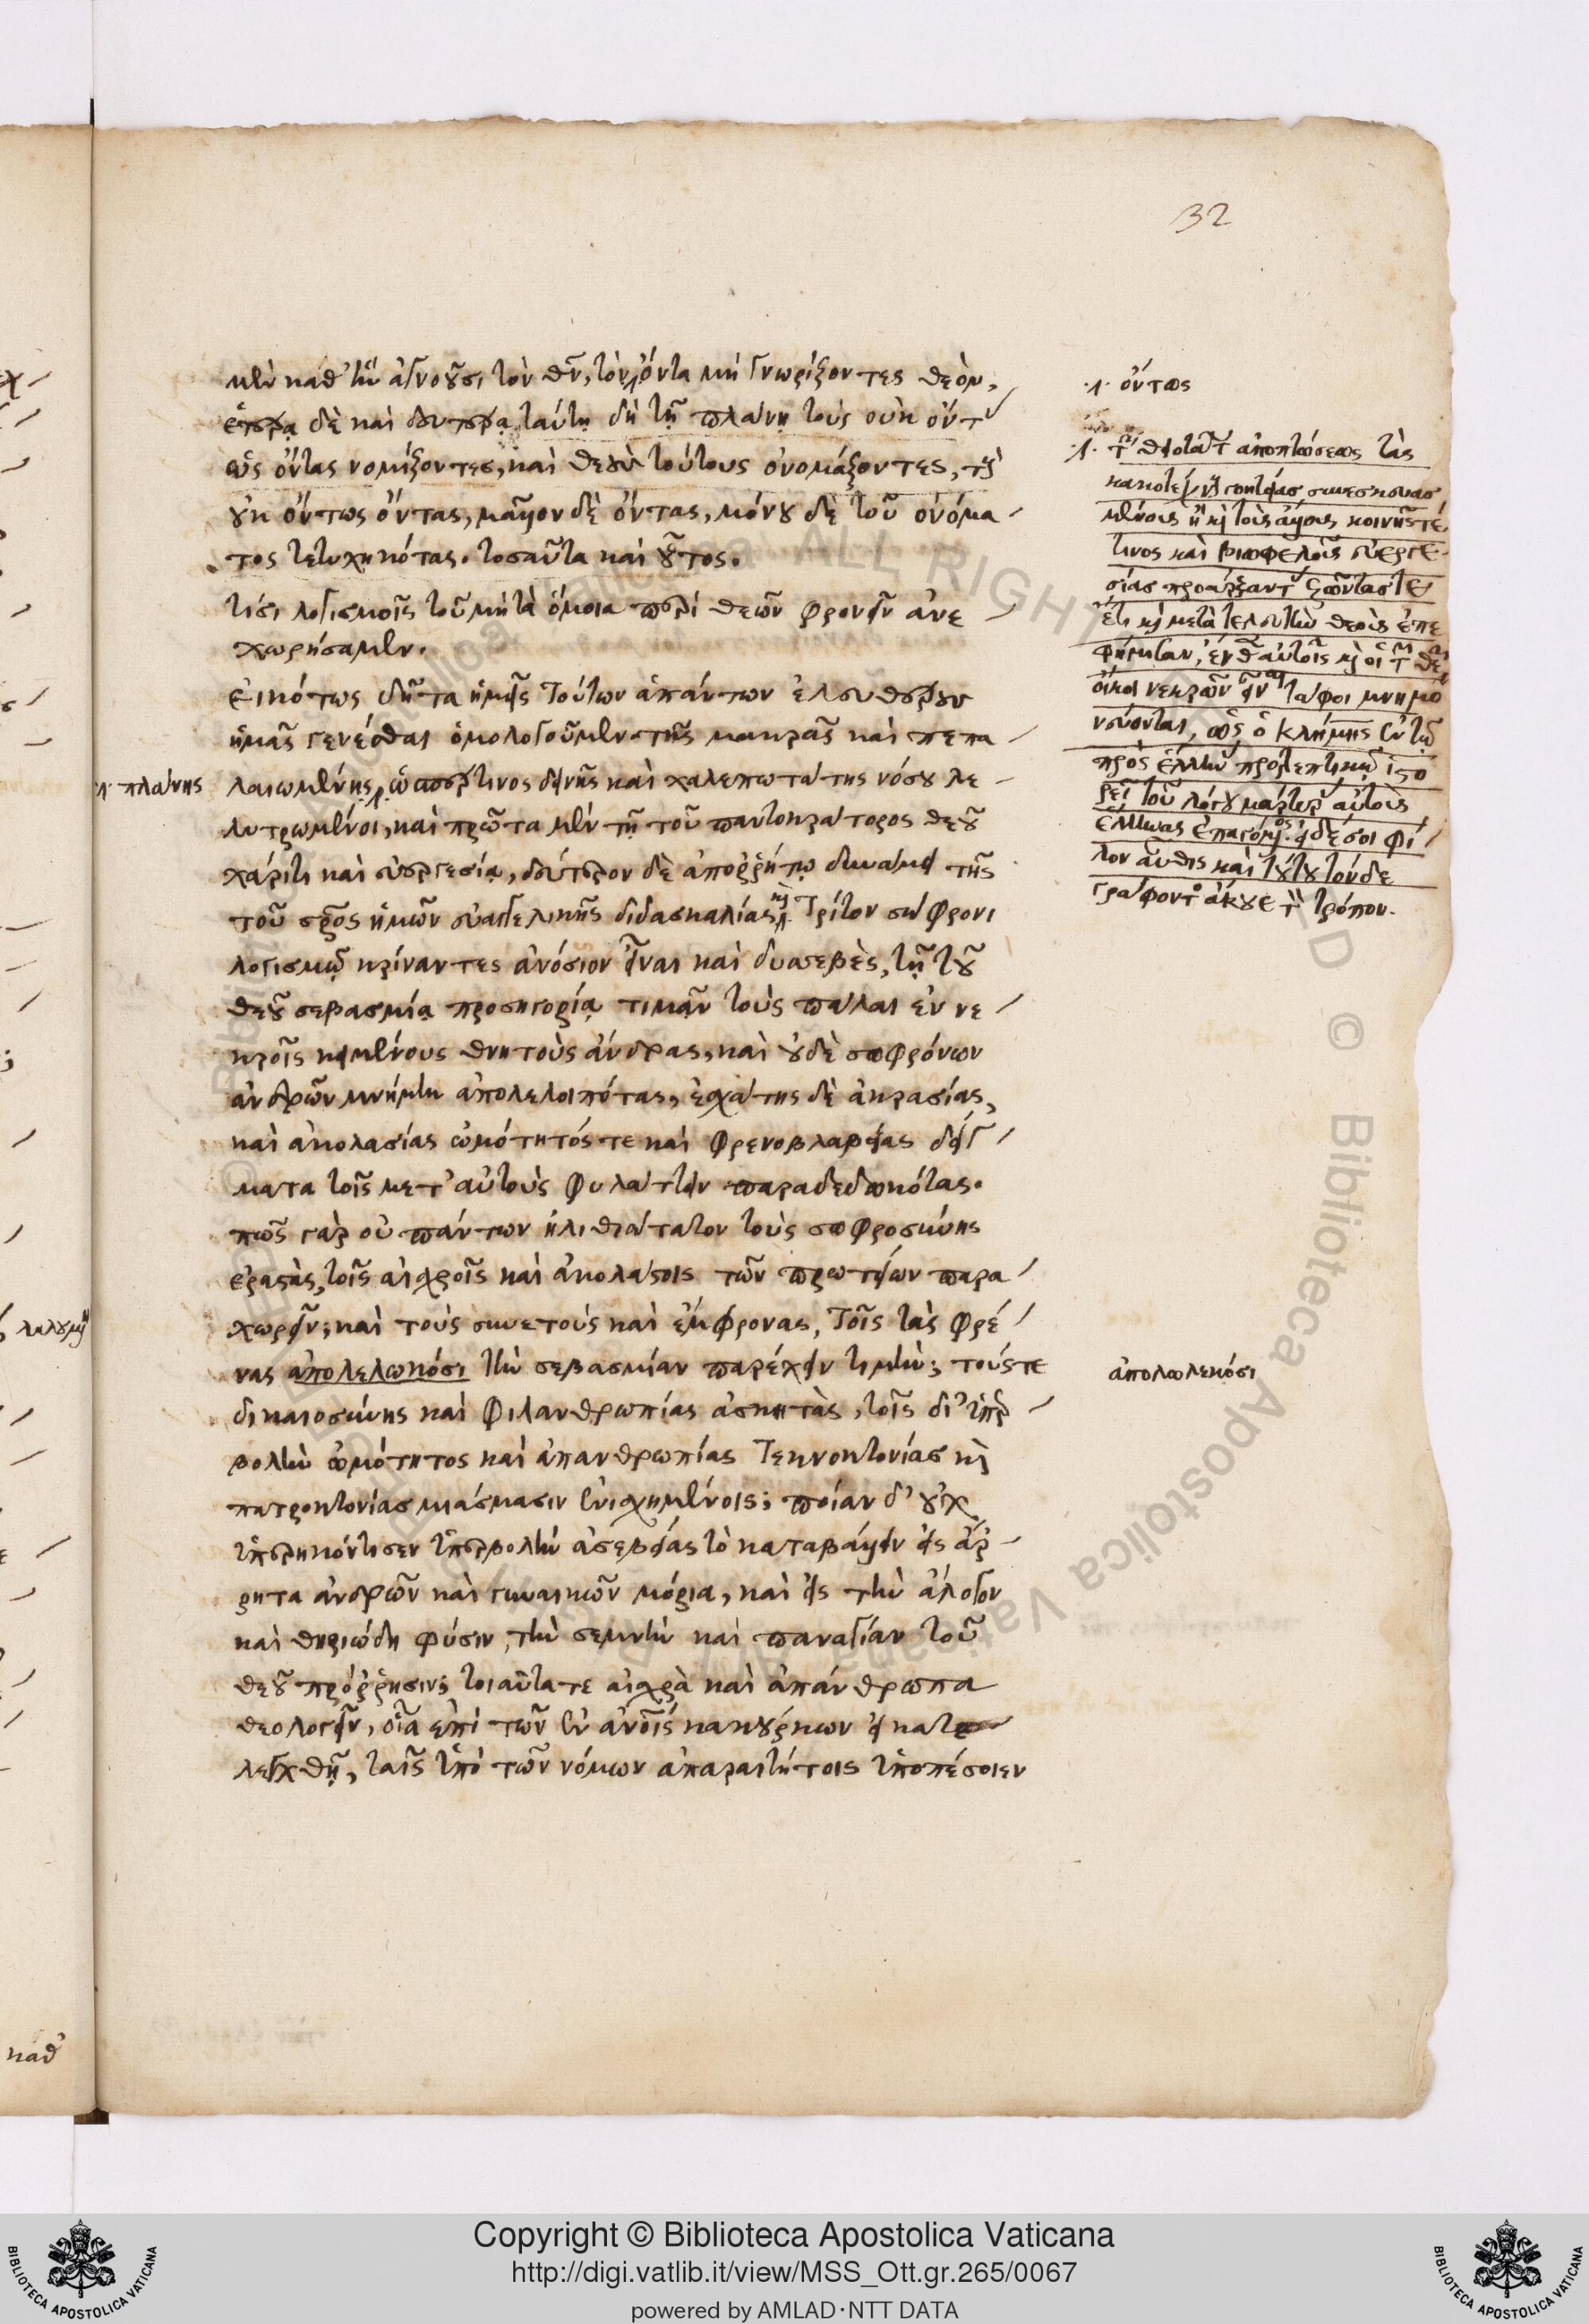 32
μὲν καθ' ἣν ἀγνοοῦσι τὸν θν, τὸν ὄντα μὴ γνωρίζοντες θεόν,
ἑτέρᾳ δὲ καὶ δευτέρᾳ ταύτῃ δὴ τῇ πλάνῃ τοὺς οὐκ ὄντ
ὡς ὄντας νομίζοντες, καὶ θεοὺς τούτους ὀνομάζοντες, τοὺς
οὐκ ὄντως ὄντας, μᾶλλον δὲ ὄντας, μόνου δὲ τοῦ ὀνόμα
τος τετυχηκότας. τοσαῦτα καὶ οὗτος.
τίσι λογισμοῖς τοῦ μὴ τὰ ὅμοια περὶ θεῶν φρονεῖν ἀνε
χωρήσαμεν.
εἰκότως δῆτα ἡμεῖς τούτων ἁπάντων ἐλευθέρους
ἡμᾶς γενέσθαι ὁμολογοῦμεν τῆς μακρᾶς καὶ πεπα
λαιωμένης, ὥσπερ τινος δεινῆς καὶ χαλεπωτάτης νόσου λε
λυτρωμένοι, καὶ πρῶτα μὲν τῇ τοῦ παντοκράτορος θεοῦ
χάριτι καὶ εὐεργεσίᾳ, δεύτερον δὲ ἀπορρήτῳ δυνάμει τῆς
τοῦ σρος ἡμῶν εὐαγγελικῆς διδασκαλίας, καὶ τρίτον σώφρονι
λογισμῷ κρίναντες ἀνόσιον εἶναι καὶ δυσεβὲς, τῇ τοῦ
θεοῦ σεβασμίᾳ προσηγορίᾳ τιμᾶν τοὺς πάλαι ἐν νε
κροῖς κειμένους θνητοὺς ἄνδρας, καὶ οὐδὲ σωφρόνων
ἀνδρῶν μνήμην ἀπολελοιπότας, ἐσχάτης δὲ ἀκρασίας,
καὶ ἀκολασίας ὠμότητός τε καὶ φρενοβλαβείας δείγ
ματα τοῖς μετ' αὐτοὺς φυλάττειν παραδεδωκότας.
πῶς γὰρ οὐ πάντων ἠλιθιώτατον τοὺς σωφροσύνης
ἐραστὰς, τοῖς αἰσχροῖς καὶ ἀκολάστοις τῶν πρωτείων παρα
χωρεῖν; καὶ τοὺς συνετοὺς καὶ ἔμφρονας, τοῖς τὰς φρέ
νας ἀπολελωκόσι τὴν σεβασμίαν παρέχειν τιμήν; τούς τε
δικαιοσύνης καὶ φιλανθρωπίας ἀσκητὰς, τοῖς δι' ὑπερ
βολὴν ὠμότητος καὶ ἀπανθρωπίας τεκνοκτονίας καὶ
πατροκτονίας μιάσμασιν ἐνισχημένοις; ποίαν δ' οὐχ
ὑπερηκόντισεν ὑπερβολὴν ἀσεβείας τὸ καταβάλλειν εἰς ἄρ
ρητα ἀνδρῶν καὶ γυναικῶν μόρια, καὶ εἰς τὴν ἄλογον
καὶ θηριώδη φύσιν, τὴν σεμνὴν καὶ παναγίαν τοῦ
θεοῦ πρόρρησιν; τοιαῦτά τε αἰσχρὰ καὶ ἀπάνθρωπα
θεολογεῖν, οἷα ἐπὶ τῶν ἐν ἀνοις κακούργων εἰ κατε
λεγχθῇ, ταῖς ὑπὸ τῶν νόμων ἀπαραιτήτοις ὑποπέσοιεν
λ. πλάνης
λ. ὄντως
λ. θειοτάτ ἀποπτώσεως τὰς
ἢ καὶ τοὺς ἄλλοις κοινῆς τέ
τινος καὶ βιωφελοῦς εὐεργε
σίας προάρξαντ ζῶντας τε
ἔτι καὶ μετὰ τελευτὴν θεοὺς ἐπε
φήμισαν, ἔνθ αὐτοῖς καὶ οἱ
οἶκοι νεκρῶν τάφοι μνημο
νεύονται, ὡς ὁ κλήμης ἐν τῷ
πρὸς ἕλλην προτρεπτικῷ ἱστο
ρεῖ τοῦ λόγου μάρτυρ αὐτοὺς
ἕλληνας ἐπαγόμενος. εἰ δέ σοι φί
λον αὖθις καὶ τούτου τόνδε
γράφοντος ἄκουε τὸν τρόπον.
ἀπολωλεκόσι
καθ'
Copyright © Biblioteca Apostolica Vaticana
http://digi.vatlib.it/view/MSS_Ott.gr.265/0067
powered by AMLAD·NTT DATA
BIBLIOTECA APOSTOLICA VATICANA
BIBLIOTECA APOSTOLICA VATICANA